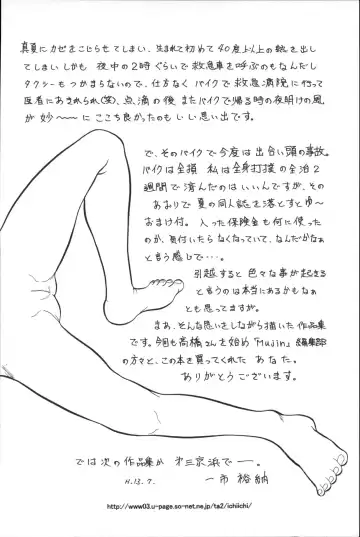 真夏にカゼをこじらせてしまい、生まれて初めて40度以上の熱を出し
てしまいしかも 夜中の2時ぐらいで救急車を呼ぶのもなんだし
タクシーもつかまらないので、仕方なくバイクで救急病院に行って
医者にあきれられ(笑)、点滴の後 またバイクで帰る時の夜明けの風
が妙〜〜にここち良かったのもいい思い出です。
で、そのバイクで今度は出合い頭の事故。
バイクは全損 私は全身打撲の全治2
週間で済んだのはいいんですが、その
あおりで夏の同人誌を落とすとゆ〜
おまけ付。入った保険金も何に使った
のか、気付いたらなくなっていて、なんだかなぁ
と言う感じで…。
引越すると色々な事が起きる
と言うのは本当にあるかもなぁ
とも思ってますが。
まぁ、そんな思いをしながら描いた作品集
です。今回も高橋さんを始め「Mujin」編集部
の方々と、この本を買ってくれた あなた。
ありがとうございます。
では次の作品集か 第三京浜でー。
H.13.7. 一市裕納
http://www03.u-page.so-net.ne.jp/ta2/ichiichi/